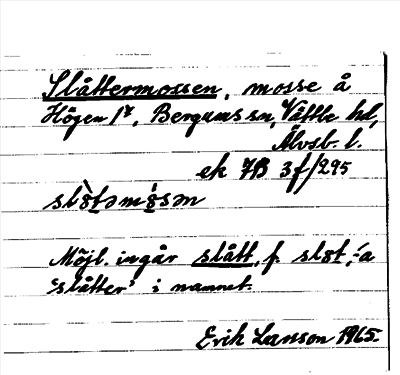 Slåttermossen, mosse å
Högen 1⁴, Bergums sn, Vättle hd,
Älvsb. l.
ek 7B 3f/295
slò̱təmó̱sən
Möjl. ingår slått, f. slot, -a
'slåtter' i namnet.
Erik Larsson 1965.